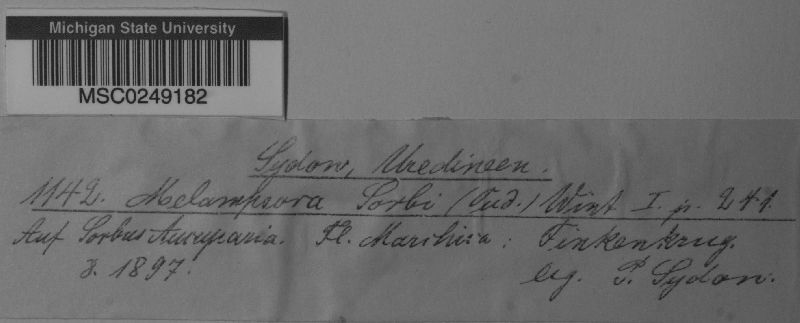 Michigan State University
MSC0249182
Sydow, Uredineen.
1142. Melampsora Sorbi (Oud.) Wint I. p. 241.
Auf Sorbus Aucuparia. Fl. Marchica: Finkenkrug.
8. 1897. leg. P. Sydow.